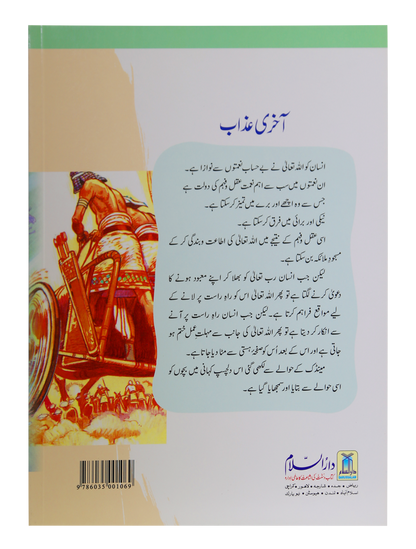 آخری عذاب
انسان کو اللہ تعالیٰ نے بے حساب نعمتوں سے نوازا ہے۔
ان نعمتوں میں سب سے اہم نعمت عقل و فہم کی دولت ہے
جس سے وہ اچھے اور برے میں تمیز کر سکتا ہے۔
نیکی اور برائی میں فرق کر سکتا ہے۔
اسی عقل و فہم کے نتیجے میں اللہ تعالیٰ کی اطاعت و بندگی کر کے
مسجودِ ملائکہ بن سکتا ہے۔
لیکن جب انسان رب تعالیٰ کو بھلا کر اپنے معبود ہونے کا
دعویٰ کرنے لگتا ہے تو پھر اللہ تعالیٰ اس کو راہِ راست پر لانے کے
لیے مواقع فراہم کرتا ہے۔ لیکن جب انسان راہِ راست پر آنے
سے انکار کر دیتا ہے تو پھر اللہ تعالیٰ کی جانب سے مہلتِ عمل ختم ہو
جاتی ہے اور اس کے بعد اُس کو صفحۂ ہستی سے مٹا دیا جاتا ہے۔
مینڈک کے حوالے سے لکھی گئی اس دلچسپ کہانی میں بچوں کو
اسی حوالے سے بتایا اور سمجھایا گیا ہے۔
دارالسلام
کتاب و سنت کی اشاعت کا عالمی ادارہ
ریاض • جدہ • شارجہ • لاہور • کراچی
اسلام آباد • لندن • ہیوسٹن • نیو یارک
9 786035 001069